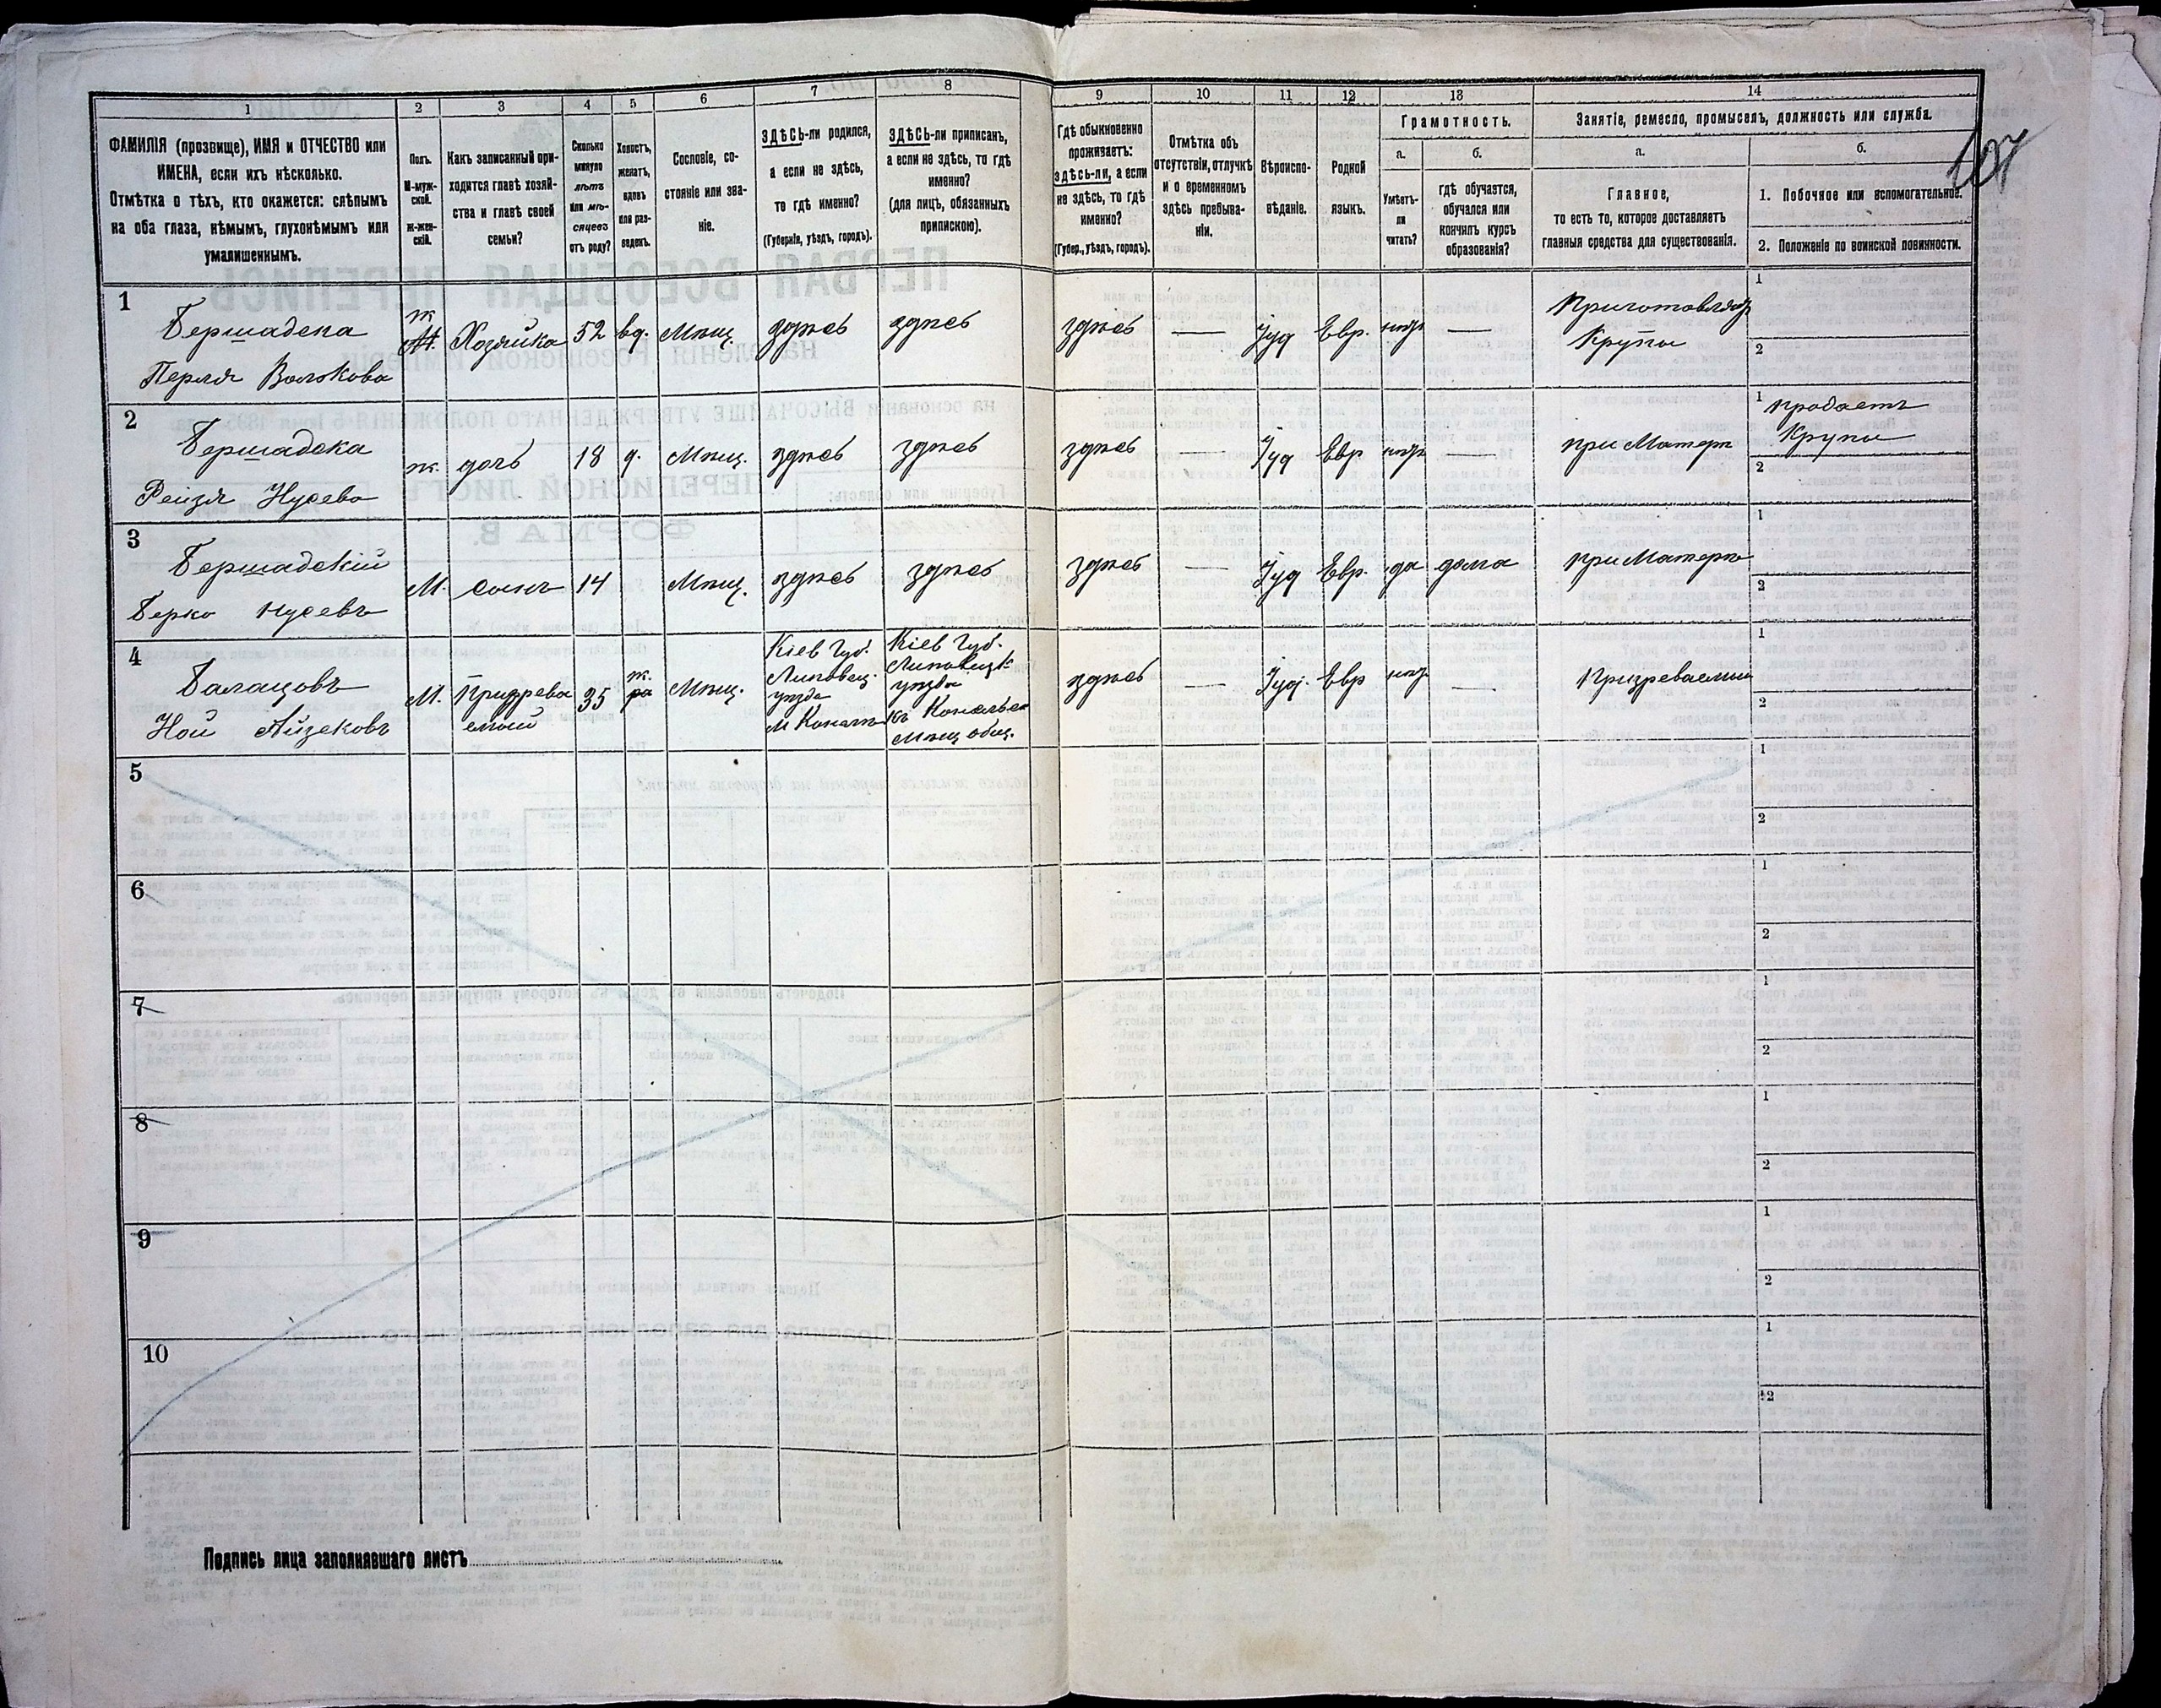 1 2 3 4 5 6 7 8 9 10 11 12 13 14
ФАМИЛІЯ (прозвище), ИМЯ и ОТЧЕСТВО или
ИМЕНА, если ихъ нѣсколько.
Отмѣтка о тѣхъ, кто окажется: слѣпымъ
на оба глаза, нѣмымъ, глухонѣмымъ или
умалишеннымъ.
Полъ.
М-муж-
ской.
Ж-жен-
скій.
Какъ записанный при-
ходится главѣ хозяй-
ства и главѣ своей
семьи?
Сколько
минуло
лѣтъ
или мѣ-
сяцевъ
отъ роду?
Холостъ,
женатъ,
вдовъ
или раз-
веденъ.
Сословіе, со-
стояніе или зва-
ніе.
ЗДѢСЬ-ли родился,
а если не здѣсь,
то гдѣ именно?
(Губернія, уѣздъ, городъ).
ЗДѢСЬ-ли приписанъ,
а если не здѣсь, то гдѣ
именно?
(для лицъ, обязанныхъ
припискою).
Гдѣ обыкновенно
проживаетъ:
здѣсь-ли, а если
не здѣсь, то гдѣ
именно?
(Губер., уѣздъ, городъ).
Отмѣтка объ
отсутствіи, отлучкѣ
и о временномъ
здѣсь пребыва-
ніи.
Вѣроиспо-
вѣданіе.
Родной
языкъ.
Грамотность.
а.
Умѣетъ-
ли
читать?
б.
гдѣ обучается,
обучался или
кончилъ курсъ
образованія?
Занятіе, ремесло, промыселъ, должность или служба.
а.
Главное,
то есть то, которое доставляетъ
главныя средства для существованія.
б.
1. Побочное или вспомогательное.
2. Положеніе по воинской повинности.
107
1
Бершадска
Перля Волькова
ж
М.
Хозяйка
52
вд.
Мѣщ.
здѣсь
здѣсь
здѣсь
—
Іуд
Евр.
нѣтъ
—
Крупы
1
2
2
Бершадска
Рейзя Нусева
ж.
дочь
18
д.
Мѣщ.
здѣсь
здѣсь
здѣсь
—
Іуд
Евр
нѣтъ
—
при Матери
1
продаетъ
Крупы
2
3
Бершадскій
Берко Нусевъ
М.
сынъ
14
Мѣщ.
здѣсь
здѣсь
здѣсь
—
Іуд
Евр.
да
дома
при Матери
1
2
4
Балацовъ
Ной Айзековъ
М.
Призрева
емый
35
ж.
Мѣщ.
Кіев Губ.
Липовец.
уѣзда
Кіев Губ.
Липовецк
уѣзда
Мѣщ общ.
здѣсь
—
Іуд.
Евр
нѣтъ
—
Призреваемый
1
2
5
1
2
6
1
2
7
1
2
8
1
2
9
1
2
10
1
2
Подпись лица заполнявшаго листъ